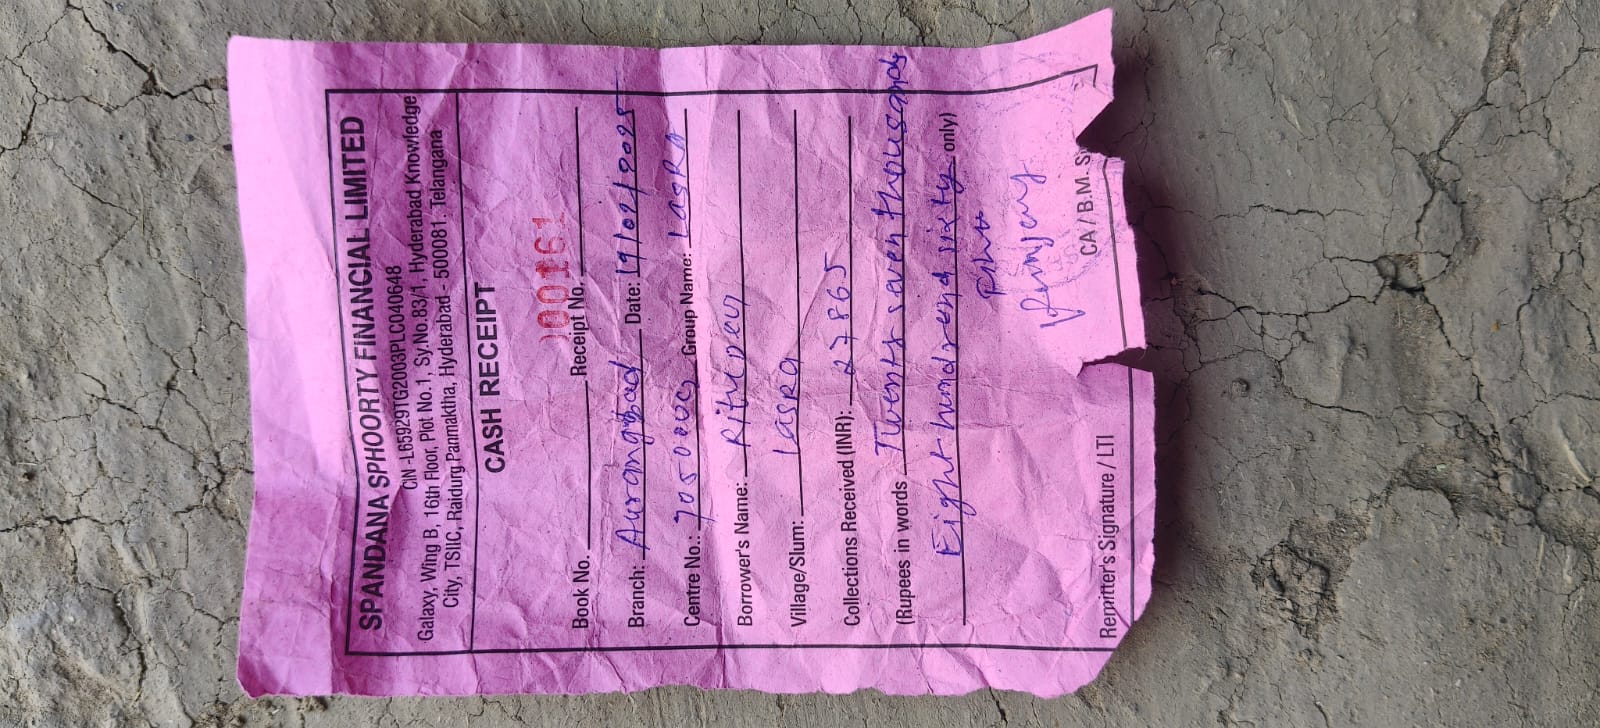 SPANDANA SPHOORTY FINANCIAL LIMITED
CIN -L65929TG2003PLC040648
Galaxy, Wing B, 16th Floor, Plot No.1, Sy.No.83/1, Hyderabad Knowledge
City, TSIIC, Raidurg Panmaktha, Hyderabad - 500081. Telangana
CASH RECEIPT
00161
Book No. Receipt No.
Branch: Aurangabad Date: 19/02/2025
Centre No.: Group Name: Lasra
Borrower's Name: Ritu Devi
Village/Slum: Lasra
Collections Received (INR): 27865
(Rupees in words Twenty seven thousand
Eight hundred and sixty only)
Remitter's Signature / LTI CA / B.M. S